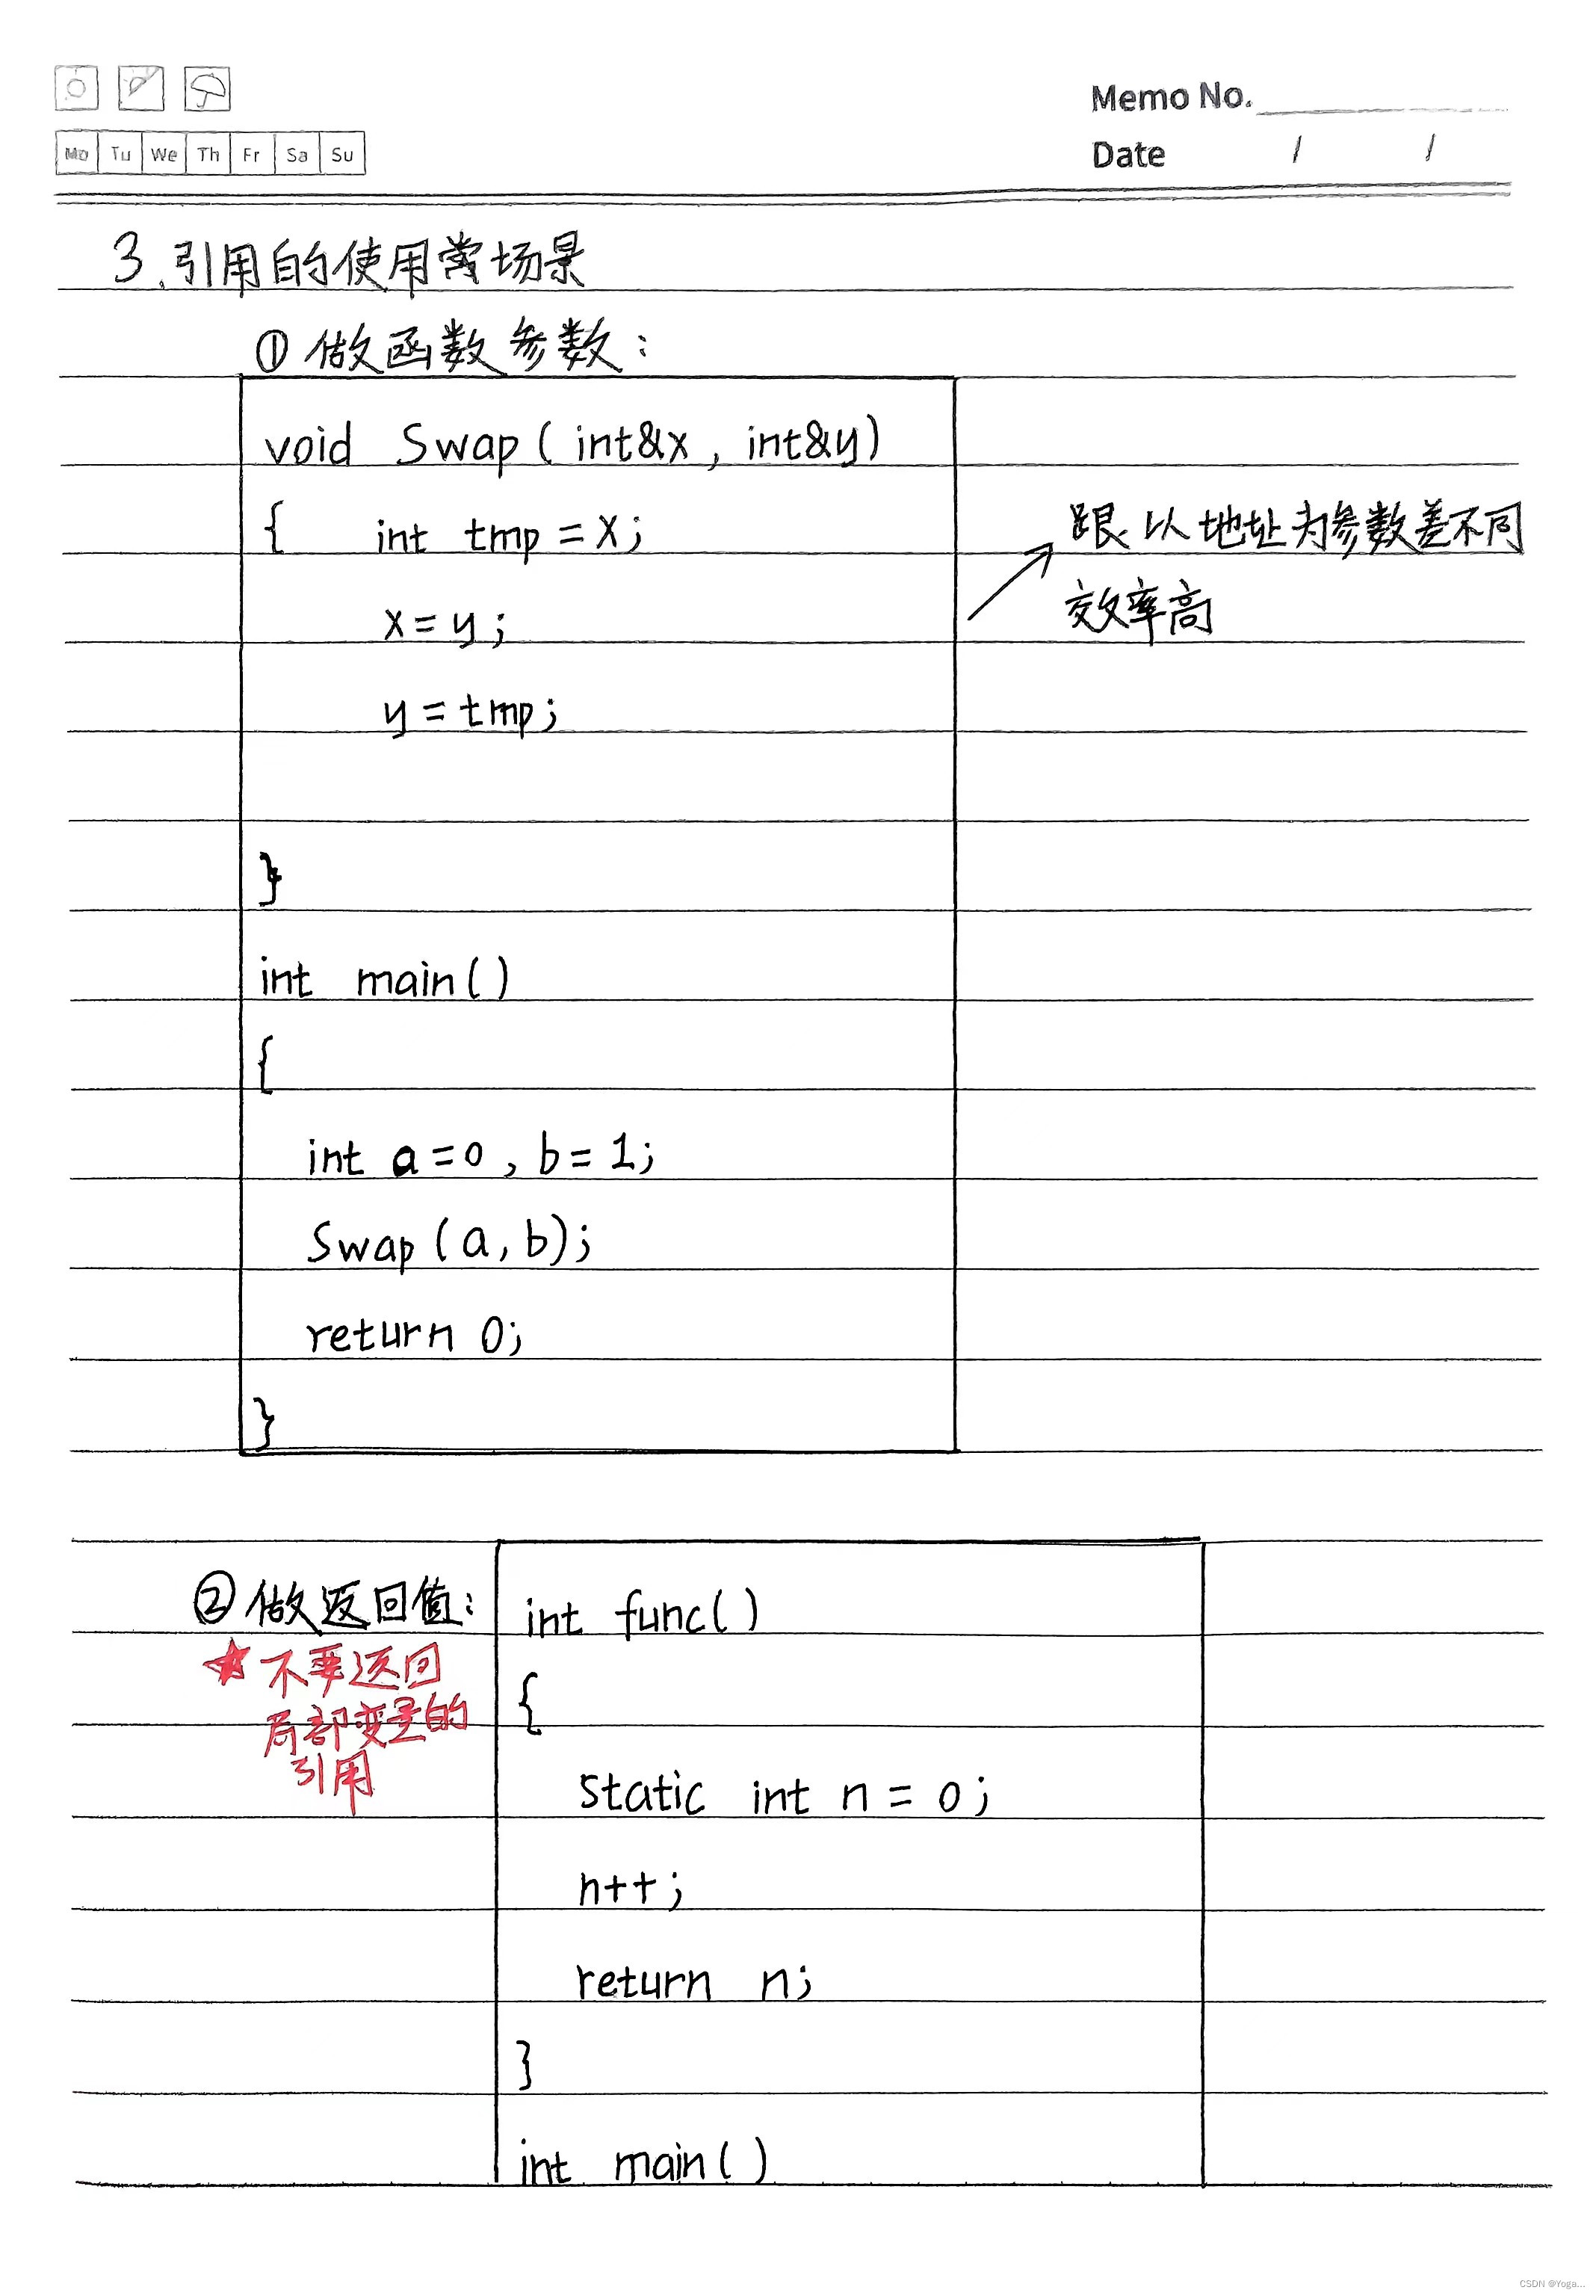 Memo No.
Mo Tu We Th Fr Sa Su
Date / /
3.引用的使用常场景
①做函数参数:
void Swap(int&x, int&y)
{ int tmp=x;
跟以地址为参数差不同
效率高
x=y;
y=tmp;
}
int main()
{
int a=0, b=1;
Swap(a,b);
return 0;
}
②做返回值:
★不要返回
局部变量的
引用
int func()
{
static int n = 0;
n++;
return n;
}
int main()
CSDN @Yoga...